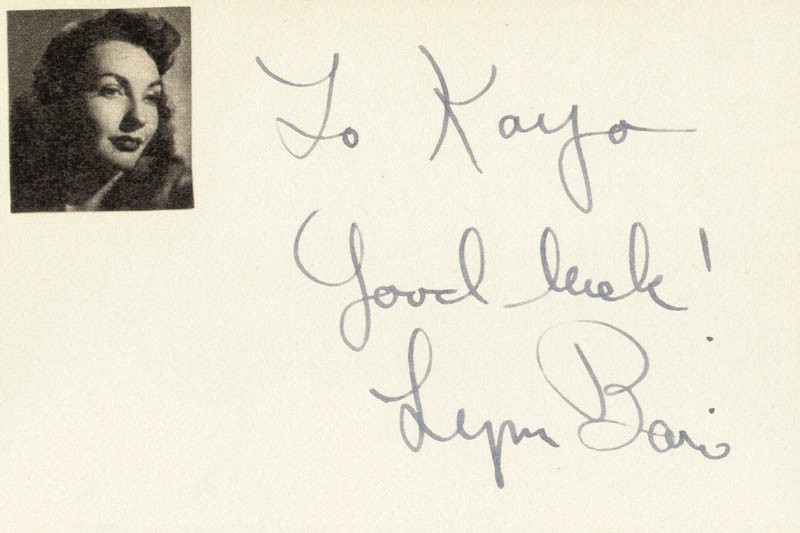 To Kayo
Good luck!
Lynn Bari